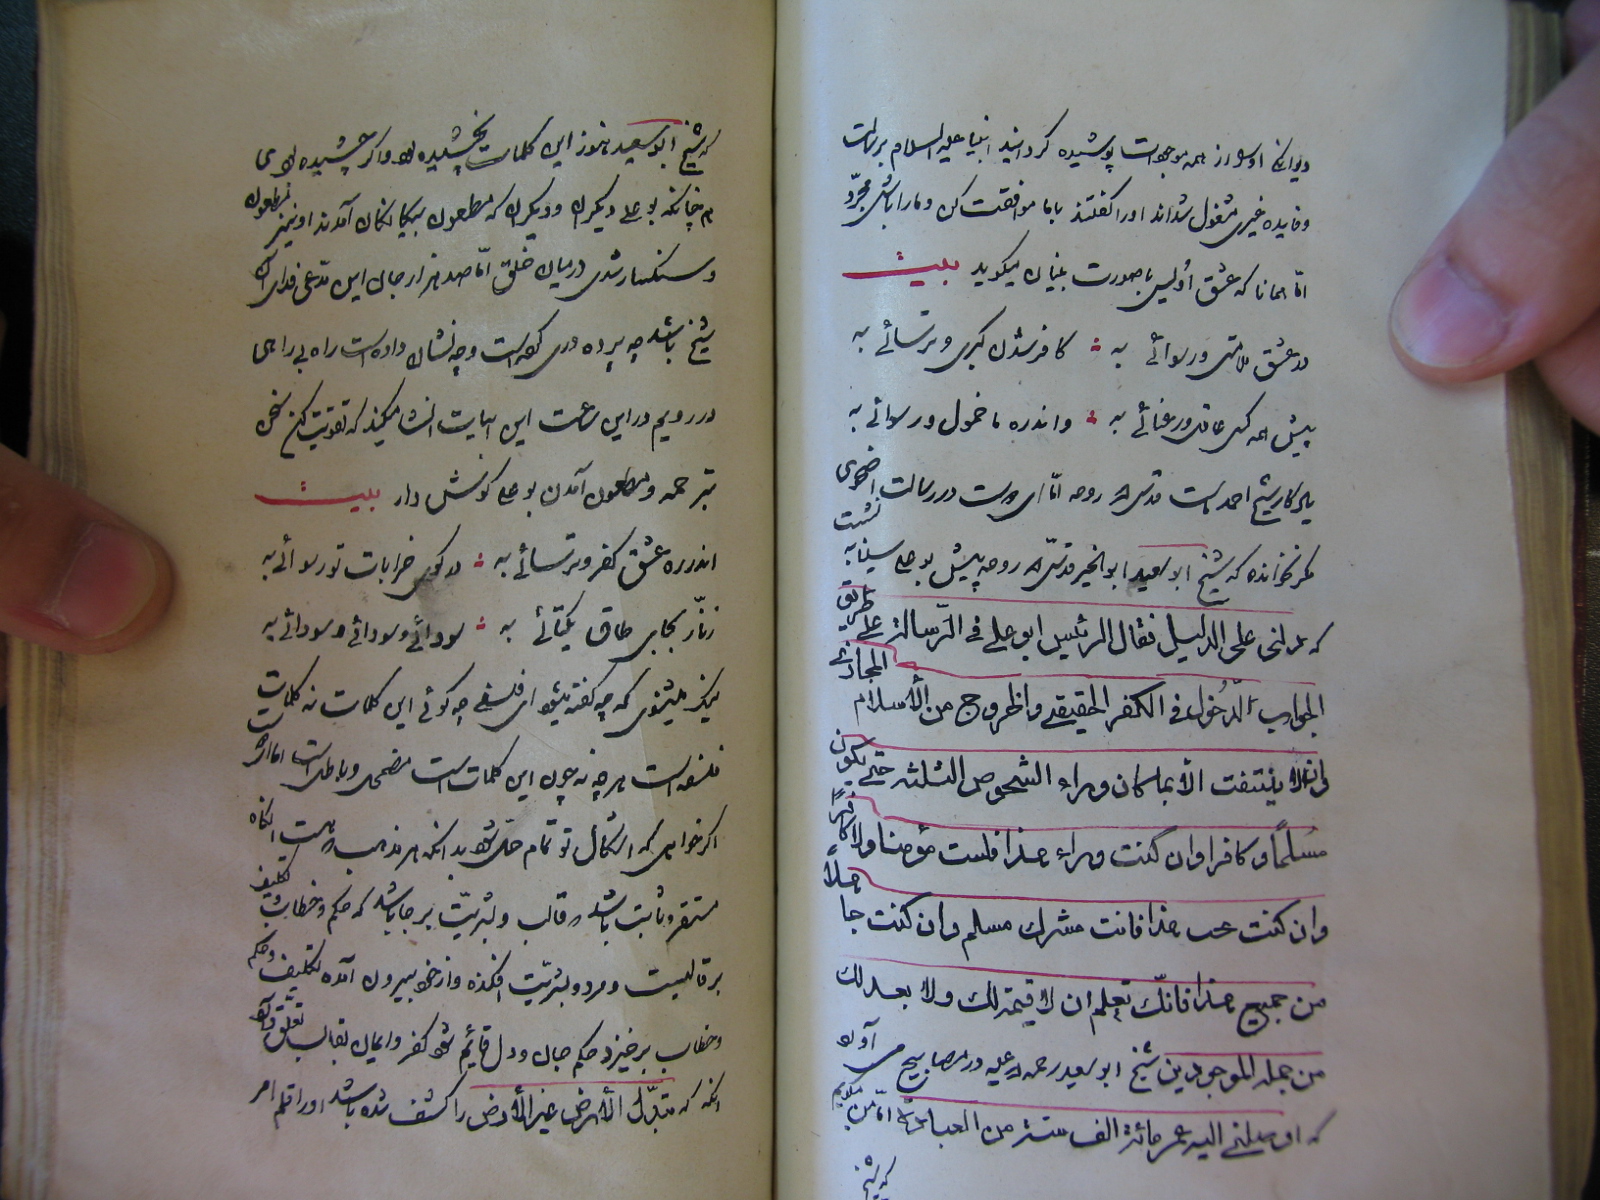 دیوانکی او را از همه موجودات پوشیده کردانید انبیا علیه السلام بر رسالت
وفایده غیری مشغول شده‌اند او را کفتند باما موافقت کن و ما را باش مجرّد
امّا همانا که عشق اُولیس با صورت بلیسان میکوید بیت
در عشق ملامتی ورسوائی به کافر شدن کبری و ترسائی به
پیش همه کس عاقلی ورعنائی به واندره ما خمول ورسوائی به
احمد است قدس الله روحه امّا ای دوست در رسالت اضحوی
مکر نخوانده که شیخ ابو سعید ابو الخیر قدس الله روحه پیش بو علی سینا نبشت
که دلنی علی الدلیل فقال الرئیس ابو علی فی الرّسالة علی طریق
الجواب الدّخول فی الکفر الحقیقی والخروج من الاسلام المجازی
وان لا یلتفت الّا بما کان وراء الشخوص الثلثة حتی یکون
مسلماً وکافرا وان کنت وراء هذا فلست مؤمنا ولا کافراً
وان کنت تحت هذا فانت مشرك مسلم وان کنت جاهلاً
من جمیع هذا فانّك تعلم ان لا قیمة لك ولا بعد لك
من جملة الموجودین شیخ ابو سعید رحمة الله علیه در مصابیح می آورد
که اوصلنی الیه عمر مائة الف سنة من العبادة امّا من میکویم
که شیخ
که شیخ ابو سعید هنوز این کلمات نچشیده بود واکر چشیده بودی
هم چنانکه بو علی ودیکران که مطعون بیکانکان آمدند او نیز مطعون
وسنکسار شدی در میان خلق امّا صد هزار جان این مدّعی فدای آن
شیخ باشد چه پرده دری کرده است وچه نشان داده است راه بی راهی
دررویم در این ساعت این ابیات انشا میکند که تقویت کن سخن
بتر حمه ومطعون آمدن بو علی کوش دار بیت
اندر ره عشق کفر وترسائی به در کوی خرابات تو رسوائی به
زنّار بجای طاق یکتائی به سودائی وسودائی وسودائی به
نیز میشنوی که چه کفته میشود ای فلسفی چه کوئی این کلمات نه کلمات
فلسفه است هر چه نه چون این کلمات است مضمحل وباطل است امّا
اکر خواهی که اشکال تو تمام حل شود بدانکه هر مذهب که هست آنکاه
مستقر وثابت باشد که قالب وبشریّت بر جا باشد که حکم وخطاب تکلیف
بر قالبست ومرد وبشریّت افکنده واز خود بیرون آمده تکلیف وحکم
وخطاب برخیزد حکم جان ودل قائم شود کفر وایمان بقالب تعلّق دارد
آنکه که تبدّل الارض غیر الارض را کشف شده باشد او را قلم امر